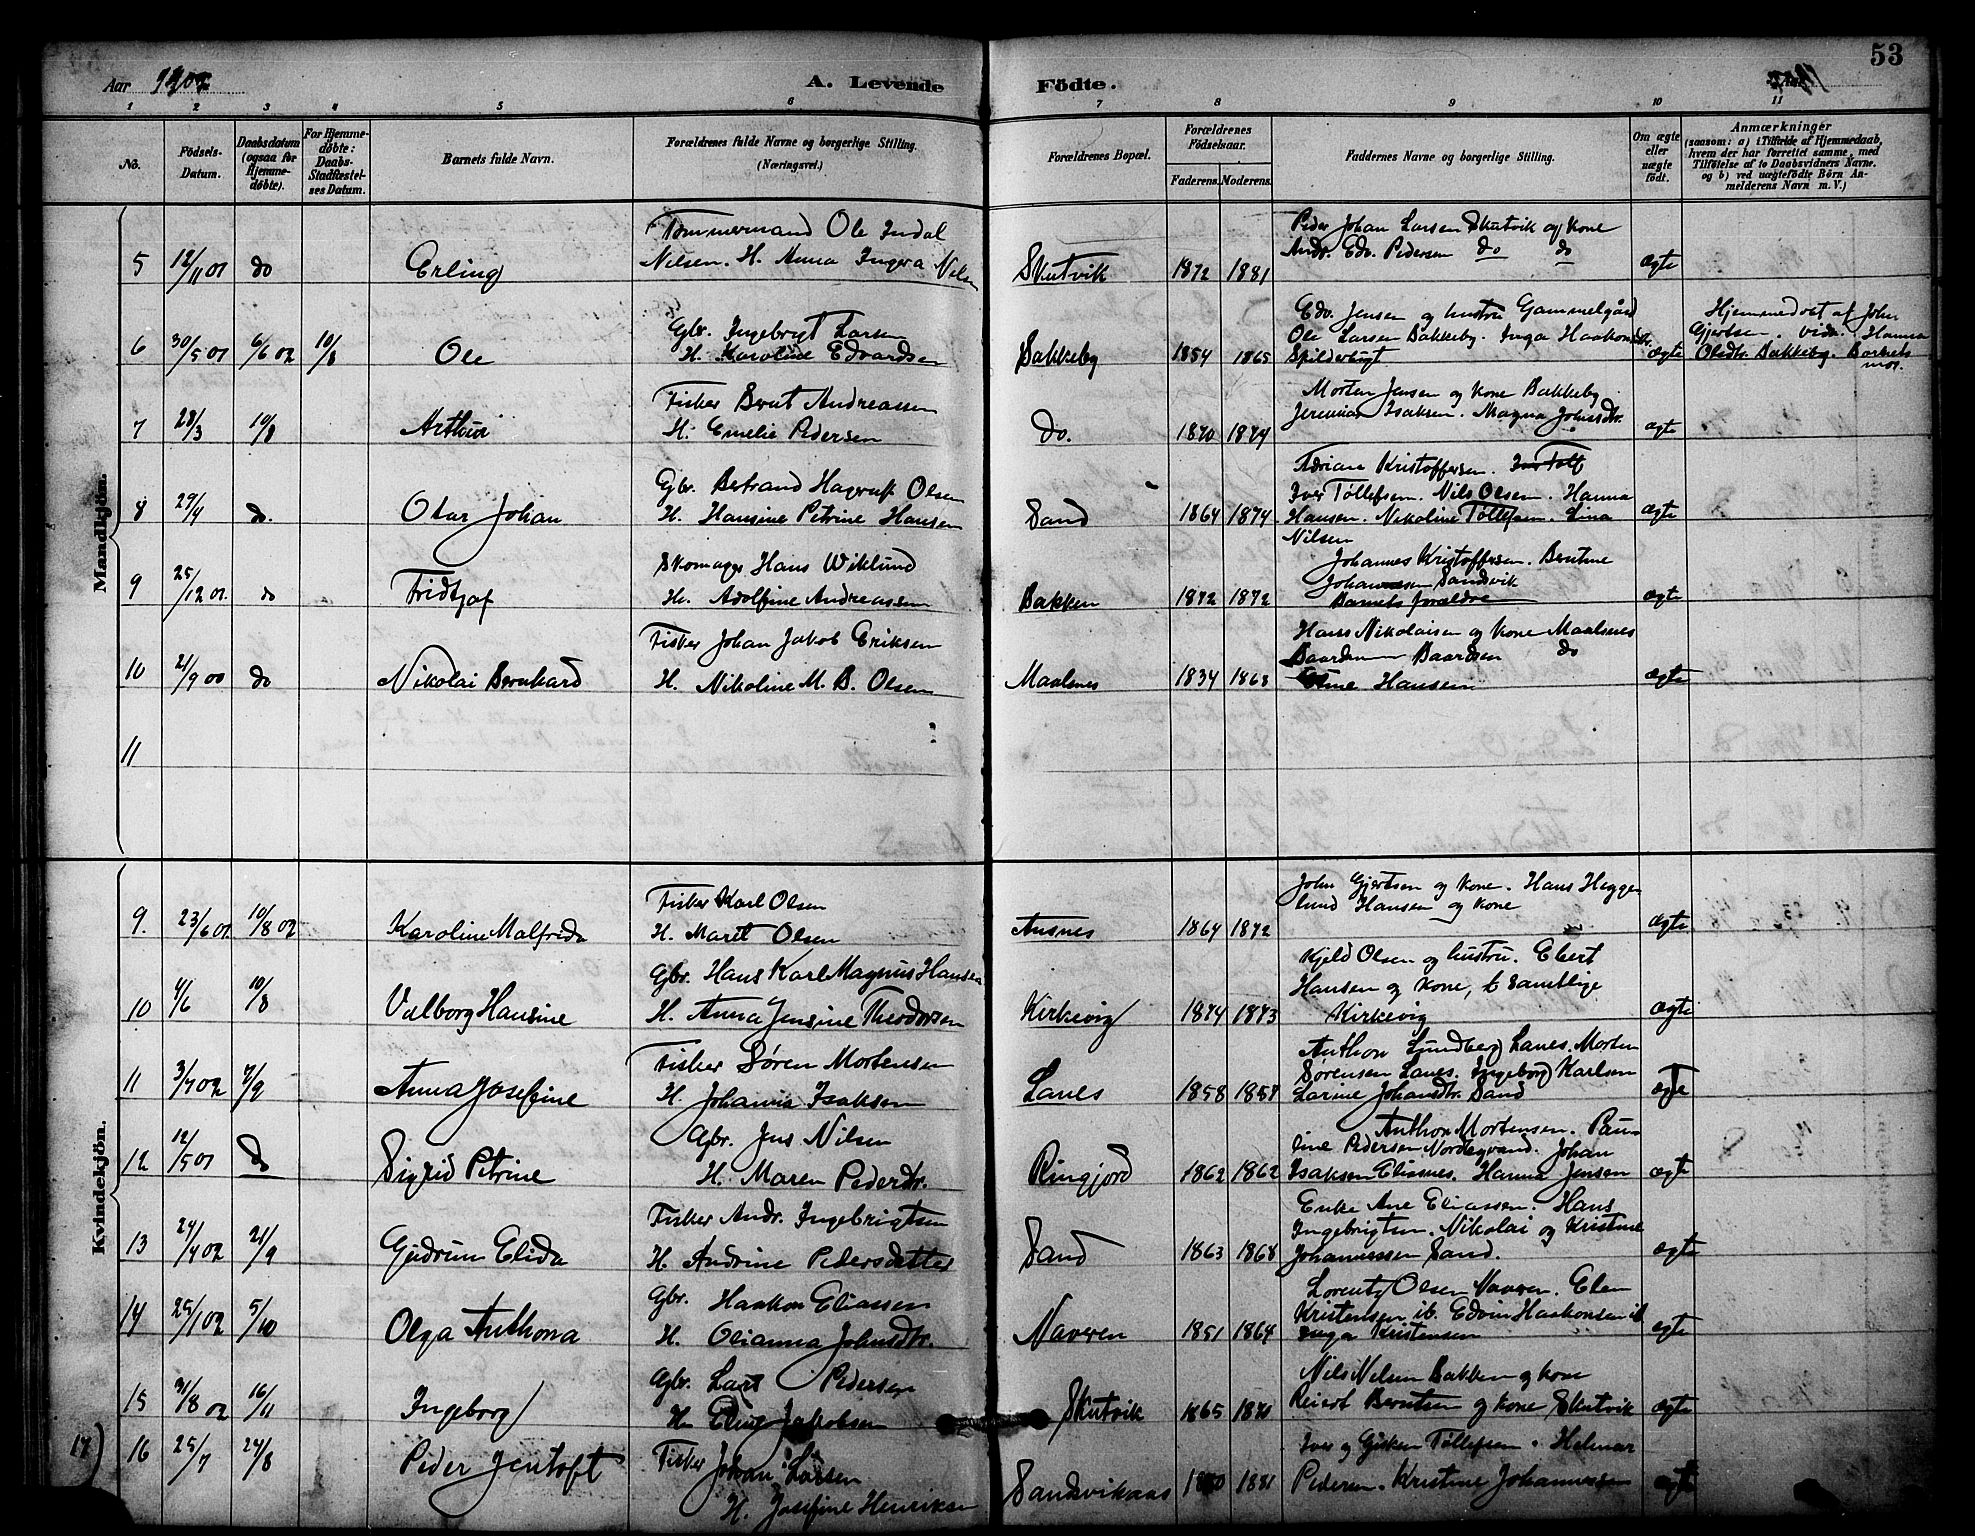 53
Aar 1902
A. Levende Födte.
1 2 3 4 5 6 7 8 9 10 11
No.
Födsels-Datum.
Daabsdatum (ogsaa for Hjemme-døbte).
For Hjemme-døbte: Daabs-Stadfæstel-ses Datum.
Barnets fulde Navn.
Forældrenes fulde Navne og borgerlige Stilling. (Næringsvei.)
Forældrenes Bopæl.
Forældrenes Födselsaar.
Faderens. Moderens.
Faddernes Navne og borgerlige Stilling.
Om ægte eller uægte født.
Anmærkninger (saasom: a) i Tilfælde af Hjemmedaab, hvem der har forrettet samme, med Tilföielse af to Daabsvidners Navne. og b) ved uægtefödte Börn An-melderens Navn m. V.)
Mandkjön.
5 12/11 01 do Erling
Tømmermand Ole Indal
Nilsen. H. Anna Ingera Nilsen
Skutvik 1872 1881
Peder Johan Larsen Skutvik og Kone
Andr. Edv. Pedersen do do
ægte
6 30/5 01 6/6 02 10/8 Ole
Gbr. Ingebrigt Larsen
H. Karoline Edvardsen
Bakkeby 1854 1865
Edv. Jensen og hustru Gammelgård
Ole Larsen Bakkeby. Inga Haakonsdtr.
Spilderbugt
ægte
Hjemmedøbt af John
Gjertsen. vidn. Hanna
Olsdtr. Bakkeby. Barnets
mor.
7 28/3 10/8 Arthur
Fisker Bernt Andreassen
H. Emelie Pedersen
do. 1870 1874
Morten Jensen og Kone Bakkeby
Jeremias Isaksen. Magna Johnsdtr.
ægte
8 29/4 do. Otar Johan
Gbr. Bertrand Hagerup Olsen
H. Hansine Petrine Hansen
Sand 1864 1874
Adriane Kristoffersen.
Iver Tøllefsen. Nils Olsen. Hanna
Hansen. Nikoline Tøllefsen. Lina
Nilsen
ægte
9 25/12 01. do Fridtjof
Skomager Hans Wiklund
H. Adolfine Andreassen
Bakken 1872 1872
Johannes Kristoffersen. Berntine
Johannessen Sandvik
Barnets forældre
ægte
10 21/9 00 do Nikolai Bernhard
Fisker Johan Jakob Eriksen
H. Nikoline M. B. Olsen
Maalsnes 1834 1868
Hans Nikolaisen og Kone Maalsnes
Baard Baardsen do
Hansen
ægte
11
Kvindekjön.
9. 23/6 01. 10/8 02 Karoline Malfrida
Fisker Karl Olsen
H. Maret Olsen
Ansnes 1864 1872
John Gjertsen og Kone. Hans Hegge-
lund Hansen og Kone
ægte
10 4/6 10/8 Valborg Hansine
Gbr. Hans Karl Magnus Hansen
H. Anna Jensine Theodorsen
Kirkevig 1874 1873
Kjeld Olsen og hustru. Ebert
Hansen og Kone, samtlige
Kirkevig
ægte
11 3/7 02 7/9 Anna Josefine
Fisker Søren Mortensen
H. Johanna Isaksen
Lanes 1858 1858
Anthon Lundberg Lanes. Morten
Sørensen Lanes. Ingeborg Karlsen
Larine Johansdtr. Sand
ægte
12 12/5 01 do Sigrid Petrine
Gbr. Jens Nilsen
H. Maren Pedersdtr.
Ringjord 1862 1862
Anthon Mortensen. Pau-
line Pedersen Nordegvand. Johan
Isaksen Eliasnes. Hanna Jensen
ægte
13 24/4 02 21/9 Gudrun Elida
Fisker Andr. Ingebrigtsen
H. Andrine Pedersdatter
Sand 1863 1868
Enke Ane Eliassen. Hans
Ingebrigtsen. Nikolai og Kristine
Johannessen Sand.
ægte
14 25/1 02 5/10 Olga Anthona
Gbr. Haakon Eliassen
H. Olianna Johnsdtr.
Navren 1851 1864
Lorentz Olsen Navren. Elen
Kristensen ib. Edvin Haakonsen ib
Inga Kristensen
ægte
15 31/8 02 16/11 Ingeborg
Gbr. Lars Pedersen
H. Eline Jakobsen
Skutvik 1865 1871
Nils Nilsen Bakken og Kone
Reiert Berntsen og Kone Skutvik
ægte
17) 16 25/7 24/8 Peder Jentoft
Fisker Johan Larsen
H. Josefine Henriksen
Sandvikaas 1881
Iver og Gjsken Tøllefsen. Helmar
Pedersen. Kristine Johannessen
ægte